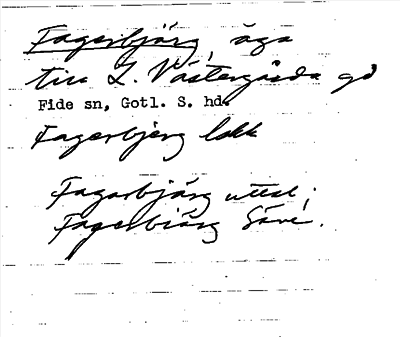 Fagerbjärg, äga
till L. Västergårda gd
Fide sn, Gotl. S. hd.
Fagerbjerg lokk
Fagarbjärg uttal;
Fagerbiärg Säve.